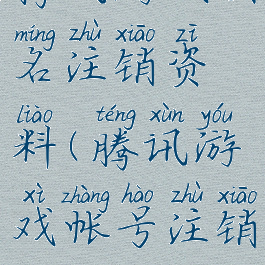 míng zhù xiāo zī
名注销资
liào téng xùn yóu
料(腾讯游
xì zhàng hào zhù xiāo
戏帐号注销